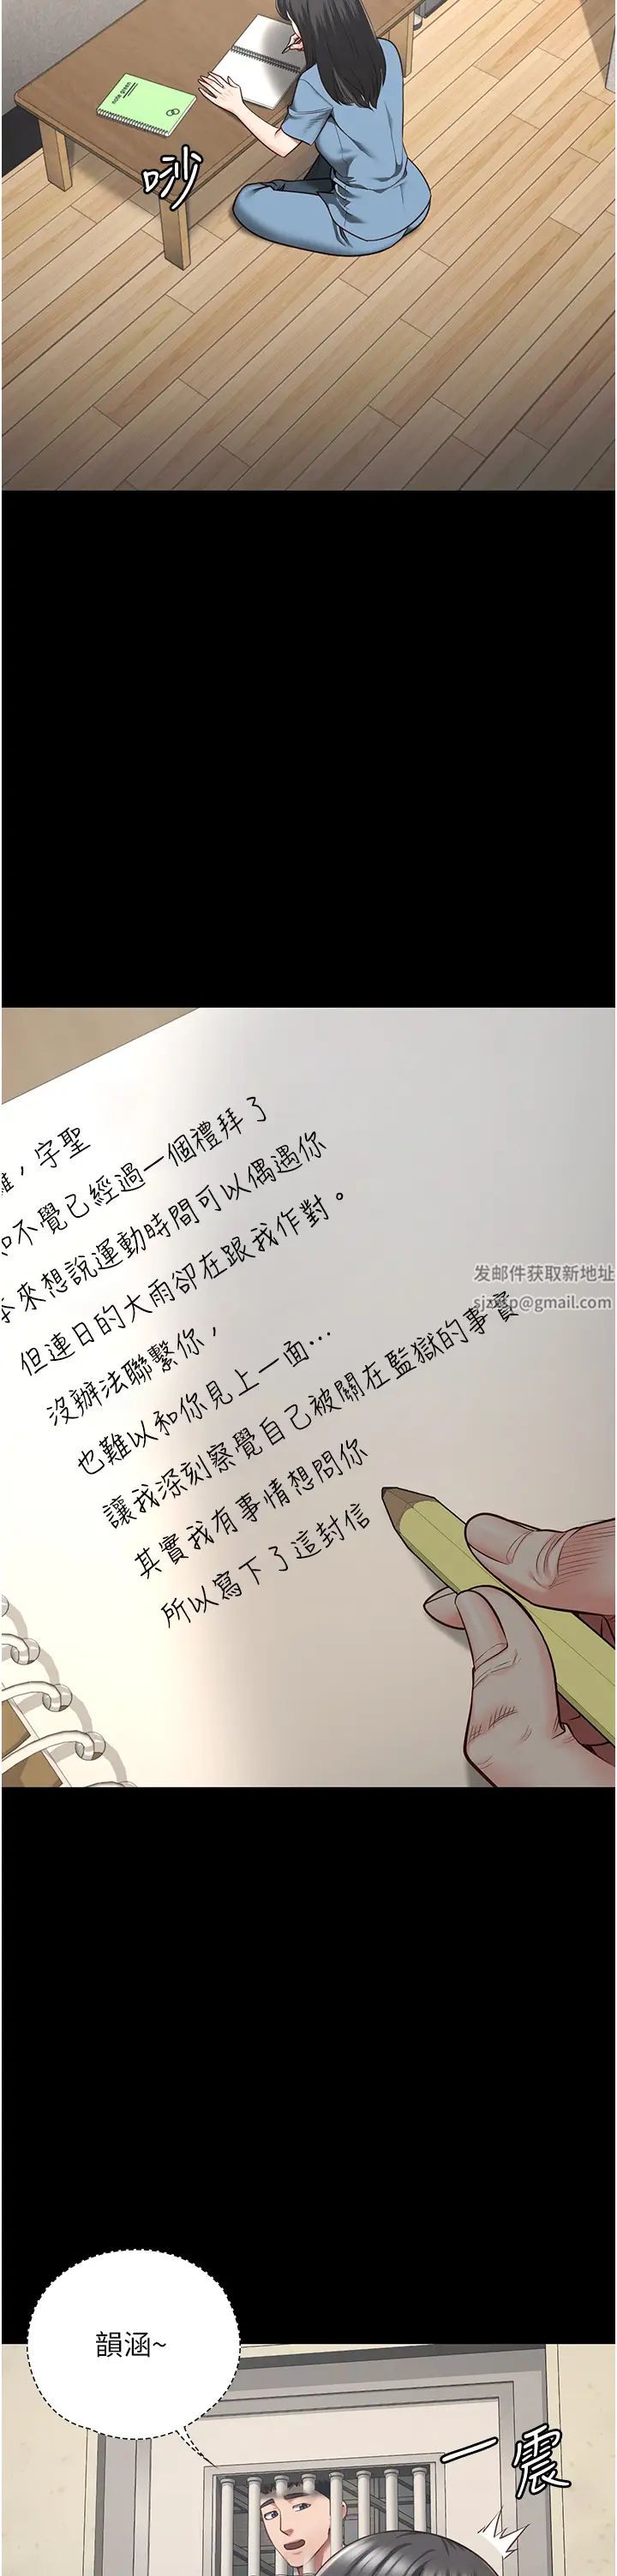 唦
字聖
不覺已經過一個禮拜了
本來想說運動時間可以偶遇你
但連日的大雨卻在跟我作對。
沒辦法聯繫你，
也難以和你見上一面…
讓我深刻察覺自己被關在監獄的事實
其實我有事情想問你
所以寫下了這封信
发邮件获取新地址
sjzxsp@gmail.com
韻涵~
一震